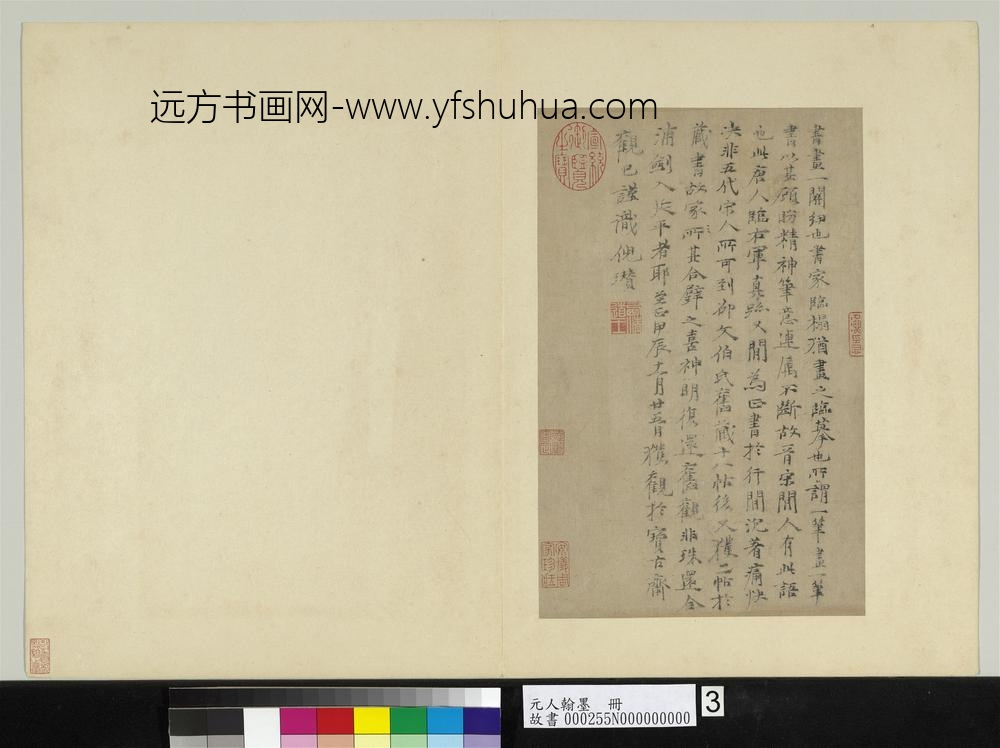 远方书画网-www.yfshuhua.com
書畫一關紐也書家臨榻猶畫之臨摹也所謂一筆畫一筆
書以其顧盼精神筆意連属不斷故晉宋間人有此語
也此唐人臨右軍真跡又間為正書於行間沈著痛快
决非五代宋人所可到邵文伯氏舊藏十八帖後又獲二帖於
藏書故家所其合璧之喜神明復還舊觀非珠還合
浦劍入延平者耶至正甲辰十一月廿五日獲觀於寶古齋
觀已謹識倪瓚
宣統御覽之寶
元人翰墨 冊
故書 000255N000000000
3